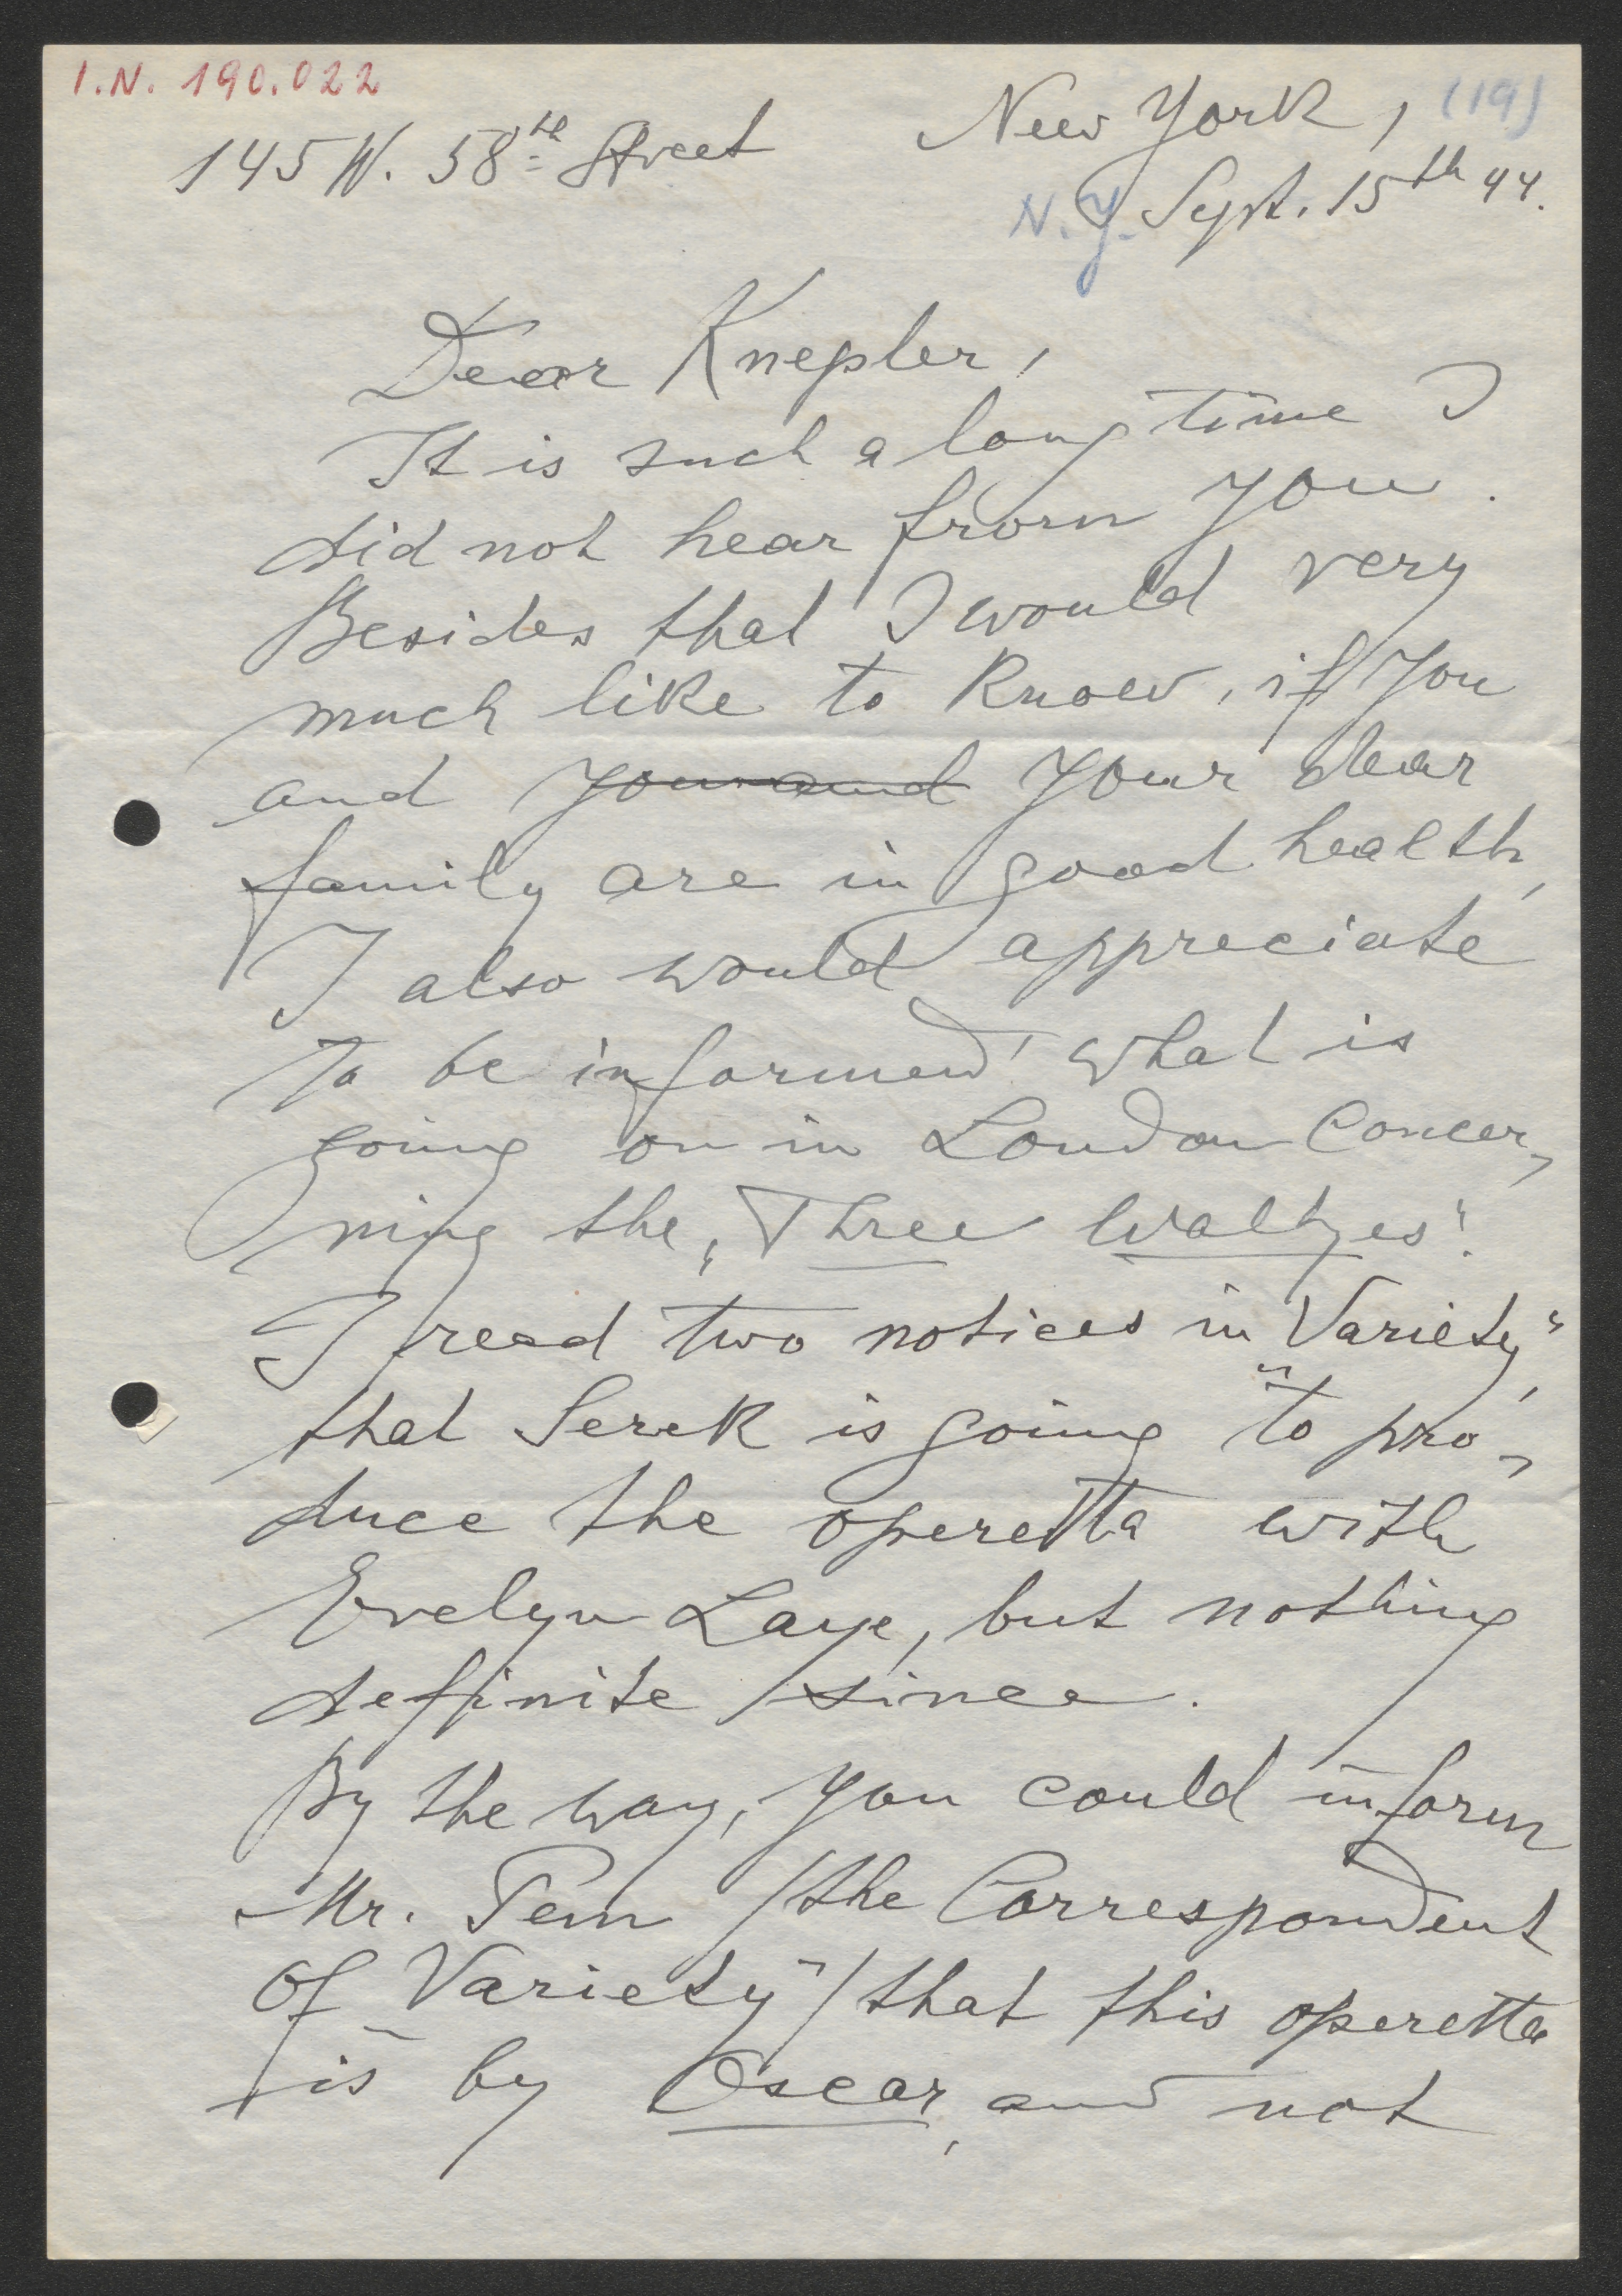 I.N. 190.022
145 W. 58th Street New York, (19)
N.Y. Sept. 15th 44.
Dear Knepler,
It is such a long time I
did not hear from you.
Besides that I would very
much like to know, if you
and you and your dear
family are in good health,
I also would appreciate
to be informed what is
going on in London concer-
ning the „Three Waltzes".
I read two notices in „Variety",
that Serek is going to pro-
duce the operetta with
Evelyn Laye, but nothing
definite since.
By the way, you could inform
Mr. Pem /the Correspondent
of „Variety"/ that this operetta
is by Oscar, and not